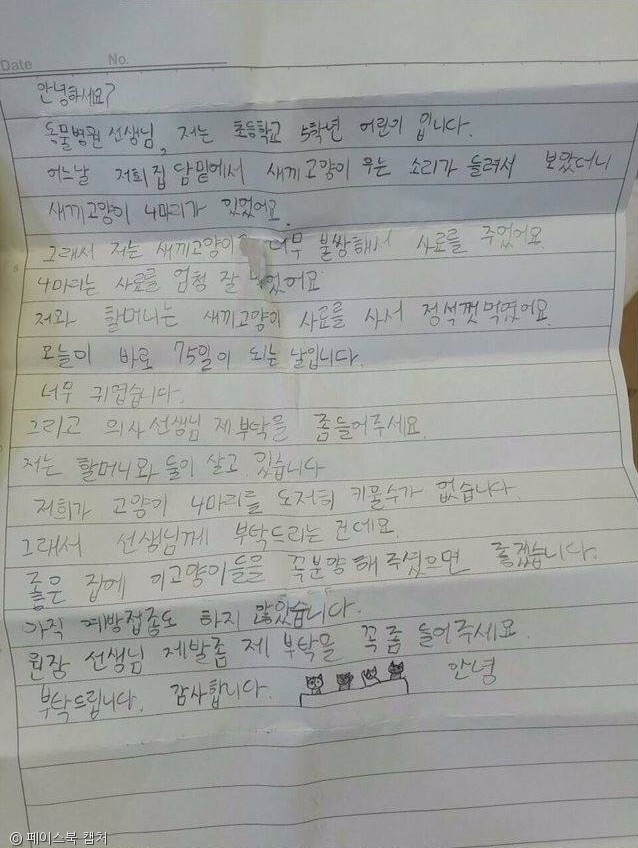 Date No.
안녕하세요?
동물병원 선생님, 저는 초등학교 5학년 어린이 입니다.
어느날 저희 집 담밑에서 새끼고양이 우는 소리가 들려서 보았더니
새끼고양이 4마리가 있었어요.
그래서 저는 새끼고양이 너무 불쌍해서 사료를 주었어요
4마리는 사료를 엄청 잘 었어요
저와 할머니는 새끼고양이 사료를 사서 정석껏먹였어요.
오늘이 바로 75일이 되는 날입니다.
너무 귀엽습니다.
그리고 의사선생님 제부탁을 좀들어주세요.
저는 할머니와 둘이 살고 있습니다
저희가 고양이 4마리를 도저히 키울수가 없습니다.
그래서 선생님께 부탁드리는 건데요.
좋은 집에 이고양이들을 꼭분양해주셨으면 좋겠습니다.
아직 예방접종도 하지 않았습니다.
원장 선생님 제발좀 제 부탁을 꼭좀 들어주세요.
부탁드립니다. 감사합니다. 안녕
© 페이스북 캡처